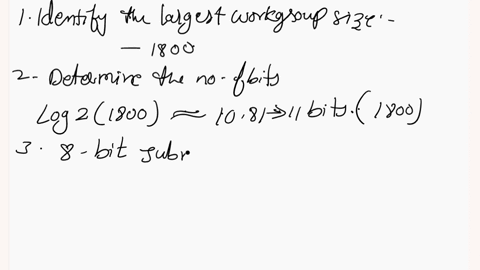 1. Identify the largest workgroup size:-
— 1800
2- Determine the no. of bits
Log 2 (1800) ≈ 10.81 → 11 bits. (1800)
3. 8-bit subn